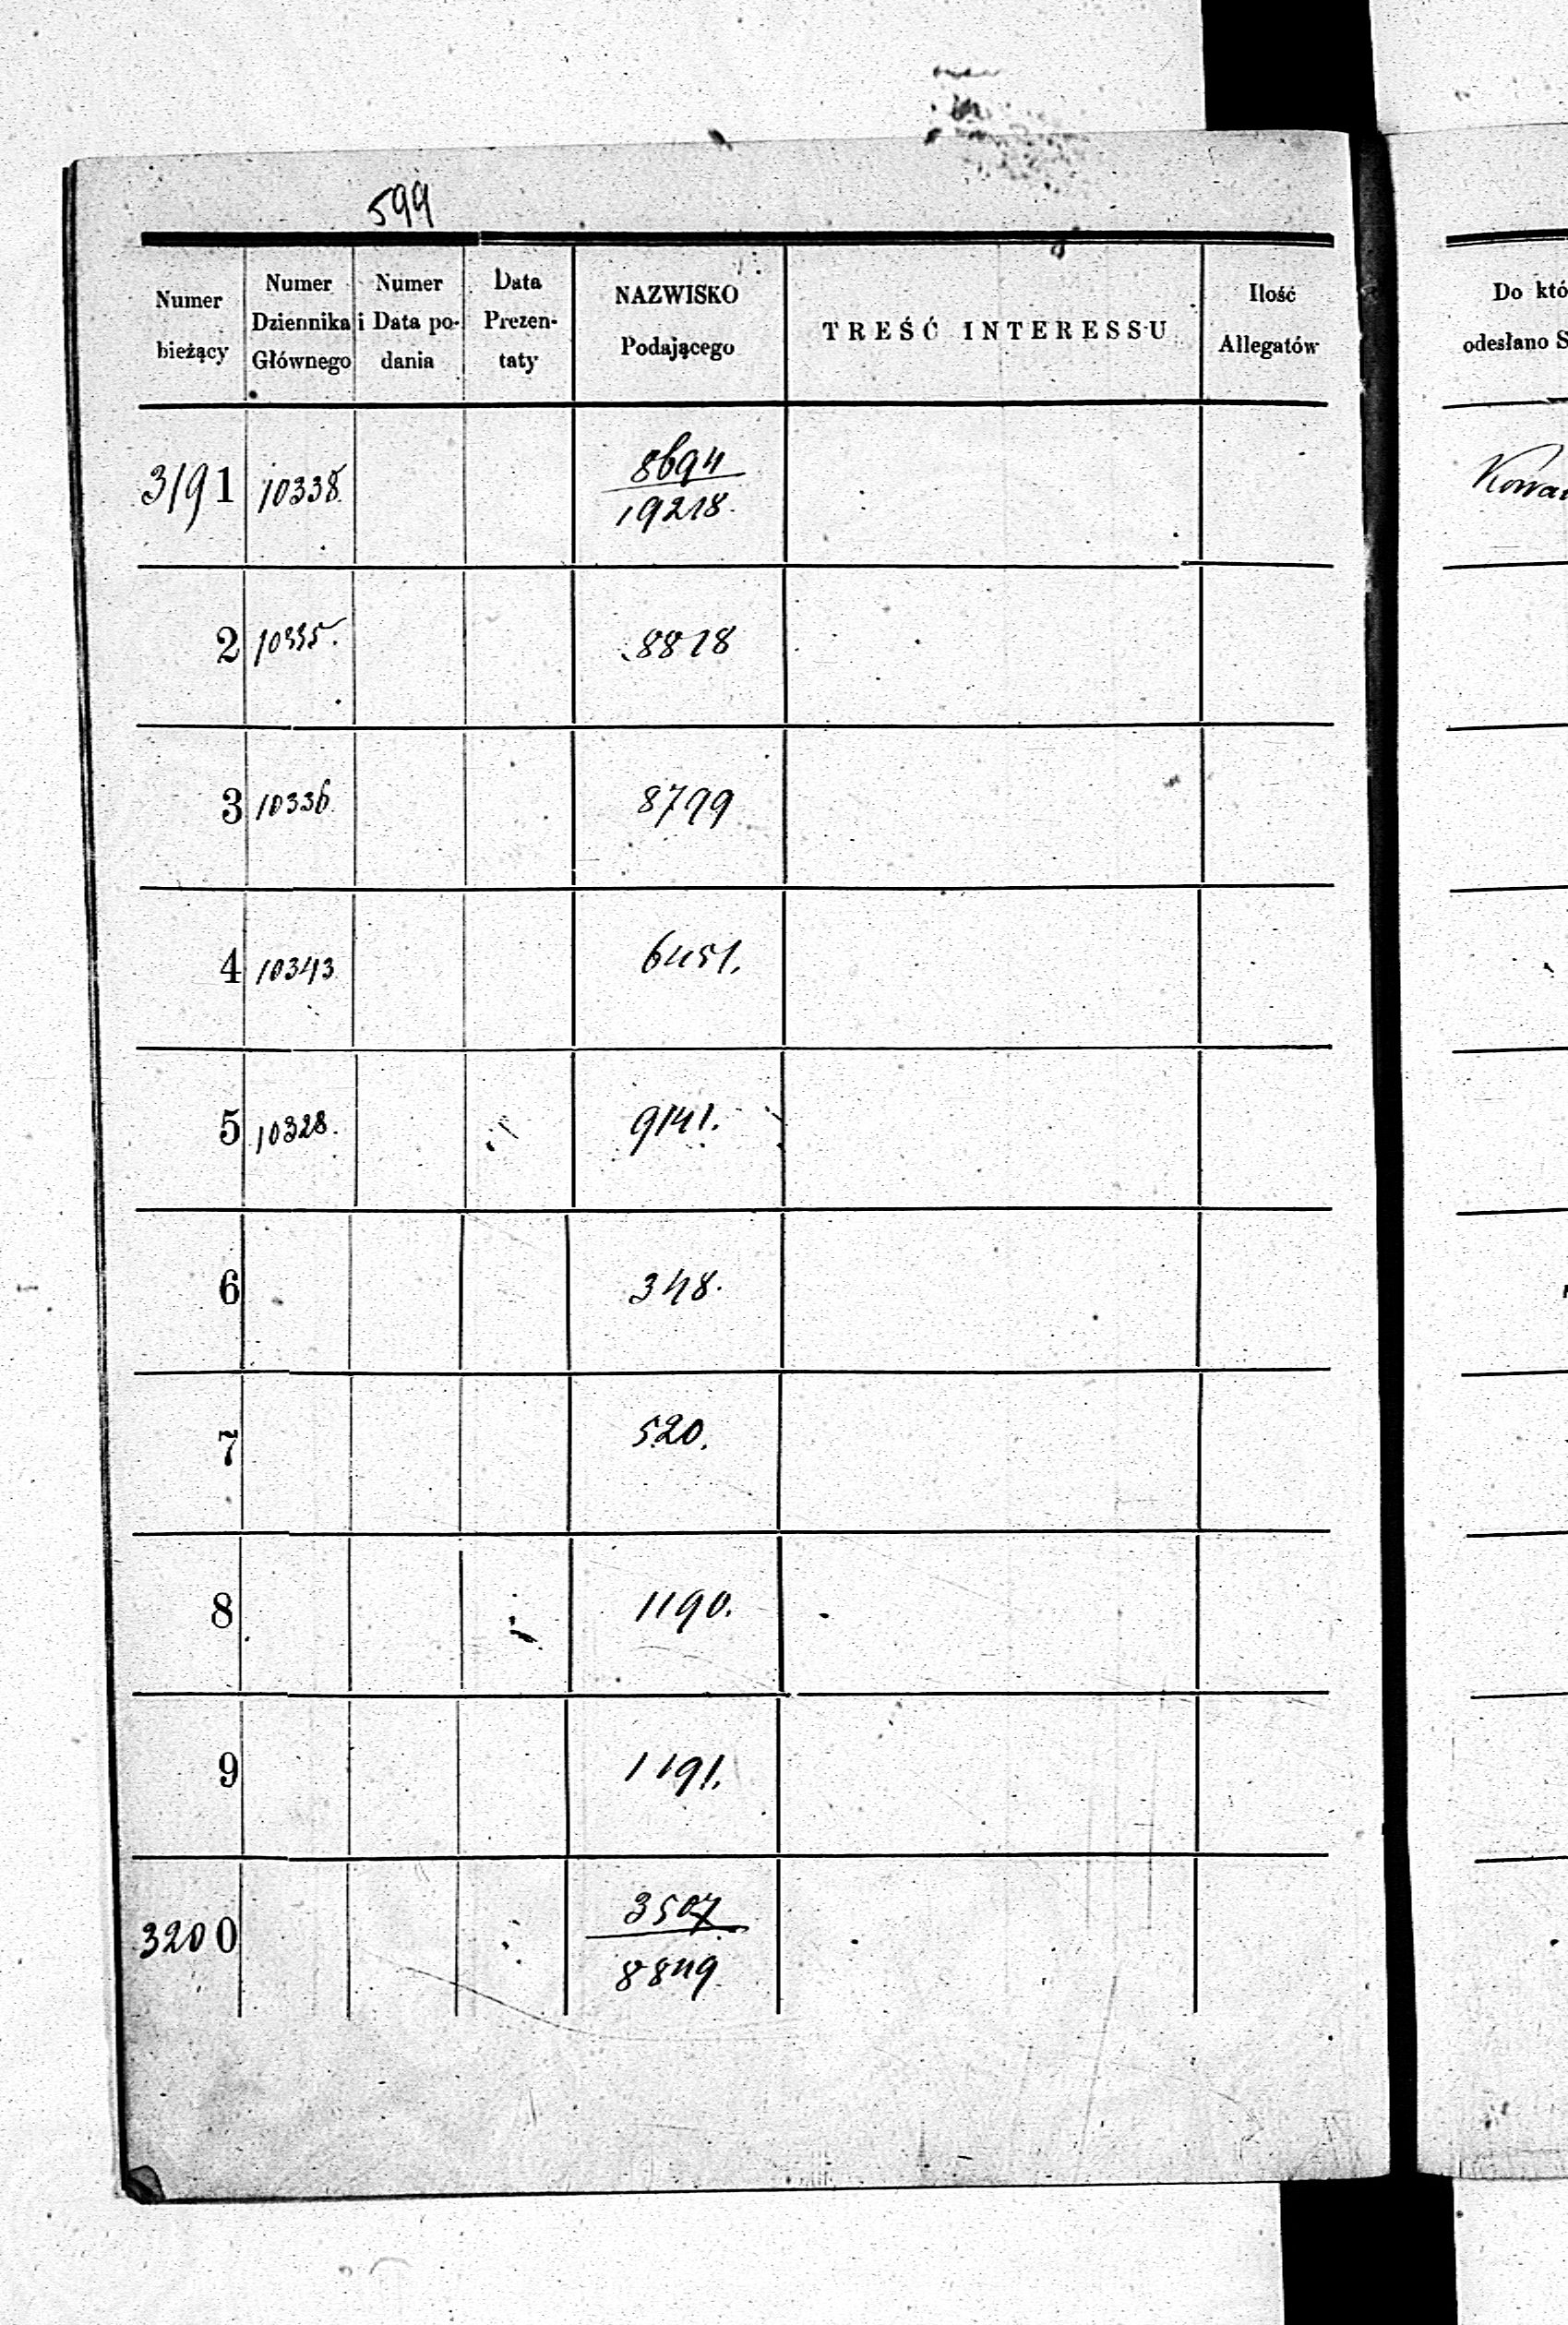 599
Numer bieżący | Numer Dziennika Głównego | Numer i Data podania | Data Prezentaty | NAZWISKO Podającego | TREŚĆ INTERESSU | Ilość Allegatów
3191 | 10338 | 8694 / 19218.
2 | 10335. | 8818
3 | 10336 | 8799
4 | 10343 | 6451.
5 | 10328. | 9141.
6 | 348.
7 | 520.
8 | 1190.
9 | 1191.
3200 | 3507 / 8849
Do któ
odesłano S